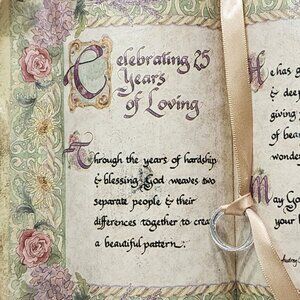 Celebrating 25
Years
of Loving
Through the years of hardship
& blessing God weaves two
separate people & their
differences together to create
a beautiful pattern.
He has g
& deep
giving
of
and
May Go
your
Audrey